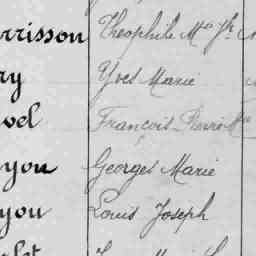 rrisson Théophile Mie Jh
ry Yves Marie
oel François Pierre Mie
you Georges Marie
you Louis Joseph